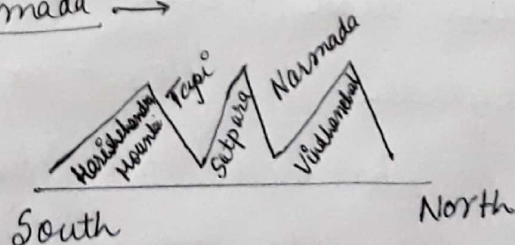 mada →
Harishchandra
Mounta
Tapi
Satpara
Narmada
Vindhanchal
South
North